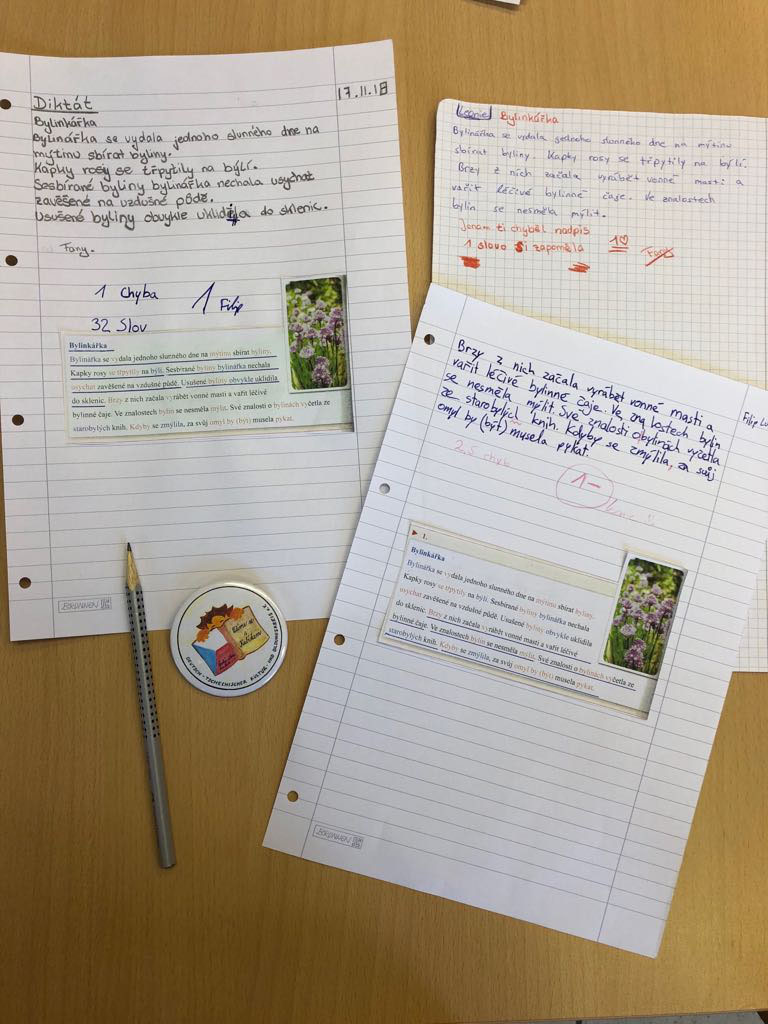 Diktát
17.11.18
Bylinkářka
Bylinářka se vydala jednoho slunného dne na
mýtinu sbírat byliny.
Kapky rosy se třpytily na býlí.
Sesbírané byliny bylinářka nechala usychat
zavěšené na vzdušné půdě.
Usušené byliny obvykle uklidila do sklenic.
Fany.
1 Chyba
1 Filip
32 Slov
Bylinkářka
Bylinářka se vydala jednoho slunného dne na mýtinu sbírat byliny.
Kapky rosy se třpytily na býlí. Sesbírané byliny bylinářka nechala
usychat zavěšené na vzdušné půdě. Usušené byliny obvykle uklidila
do sklenic. Brzy z nich začala vyrábět vonné masti a vařit léčivé
bylinné čaje. Ve znalostech bylin se nesměla mýlit. Své znalosti o bylinách vyčetla ze
starobylých knih. Kdyby se zmýlila, za svůj omyl by (být) musela pykat.
BRUNNEN
Leonie Bylinkářka
Bylinářka se vydala jednoho slunného dne na mýtinu
sbírat byliny. Kapky rosy se třpytily na býlí.
Brzy z nich začala vyrábět vonné masti a
vařit léčivé bylinné čaje. Ve znalostech
bylin se nesměla mýlit.
Jenom ti chyběl nadpis
1 slovo si zapoměla
1
Fany
Brzy z nich začala vyrábět vonné masti a
vařit léčivé bylinné čaje. Ve zna lostech bylin
se nesměla mýlit. Své znalosti o bylinách vyčetla
ze starobylých knih. Kdyby se zmýlila, za svůj
omyl by (být) musela pykat.
Filip
2,5 chyb
1-
1.
Bylinkářka
Bylinářka se vydala jednoho slunného dne na mýtinu sbírat byliny.
Kapky rosy se třpytily na býlí. Sesbírané byliny bylinářka nechala
usychat zavěšené na vzdušné půdě. Usušené byliny obvykle uklidila
do sklenic. Brzy z nich začala vyrábět vonné masti a vařit léčivé
bylinné čaje. Ve znalostech bylin se nesměla mýlit. Své znalosti o bylinách vyčetla ze
starobylých knih. Kdyby se zmýlila, za svůj omyl by (být) musela pykat.
BRUNNEN